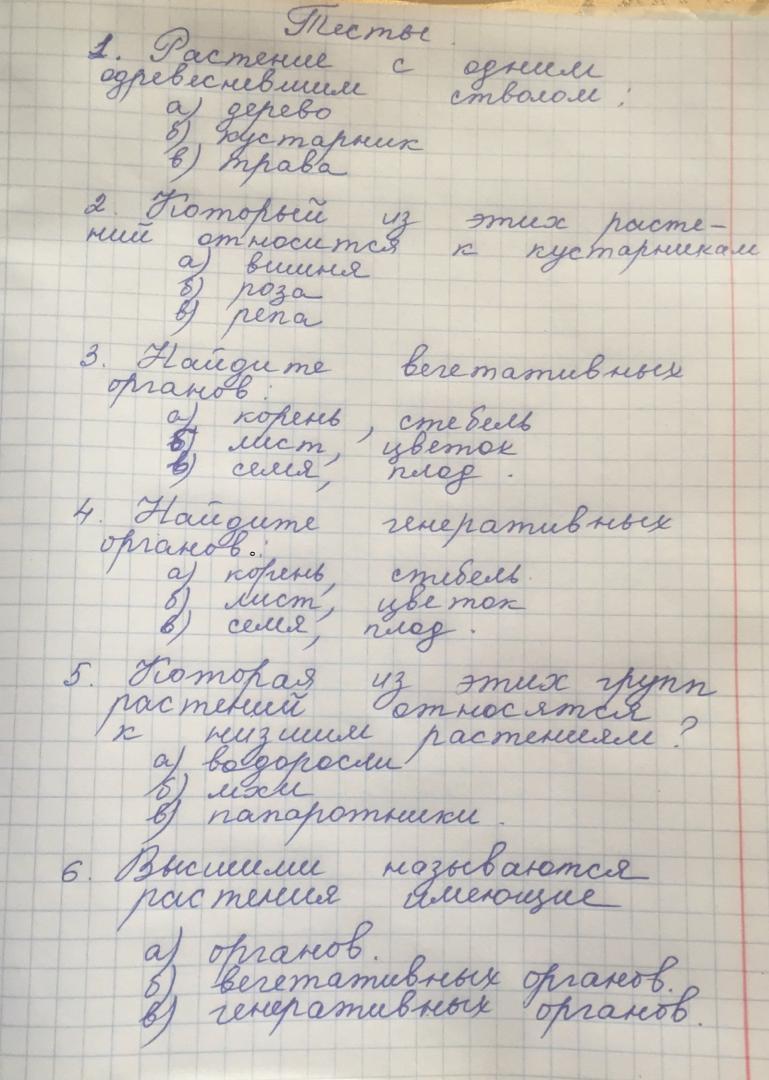 Тесты
1. Растение с одним
одревесневшим стволом:
а) дерево
б) кустарник
в) трава
2. Который из этих расте-
ний относится к кустарникам
а) вишня
б) роза
в) репа
3. Найдите вегетативных
органов:
а) корень, стебель
б) лист, цветок
в) семя, плод.
4. Найдите генеративных
органов:
а) корень, стебель
б) лист, цветок
в) семя, плод.
5. Которая из этих групп
растений относятся
к низшим растениям?
а) водоросли
б) мхи
в) папоротники.
6. Высшими называются
растения имеющие
а) органов.
б) вегетативных органов.
в) генеративных органов.